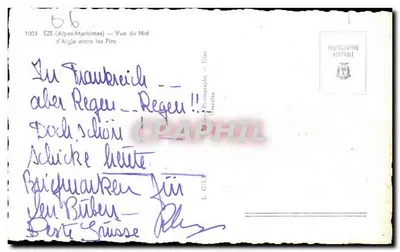 06
1003 ÈZE (Alpes-Maritimes) — Vue du Nid
d'Aigle entre les Pins
In Frankreich —
aber Regen .. Regen!!
Doch schön!
schicke heute
Briefmarken für
den Buben —
Beste Grüsse
PHOTOGRAPHIE
VERITABLE
CPRHAM